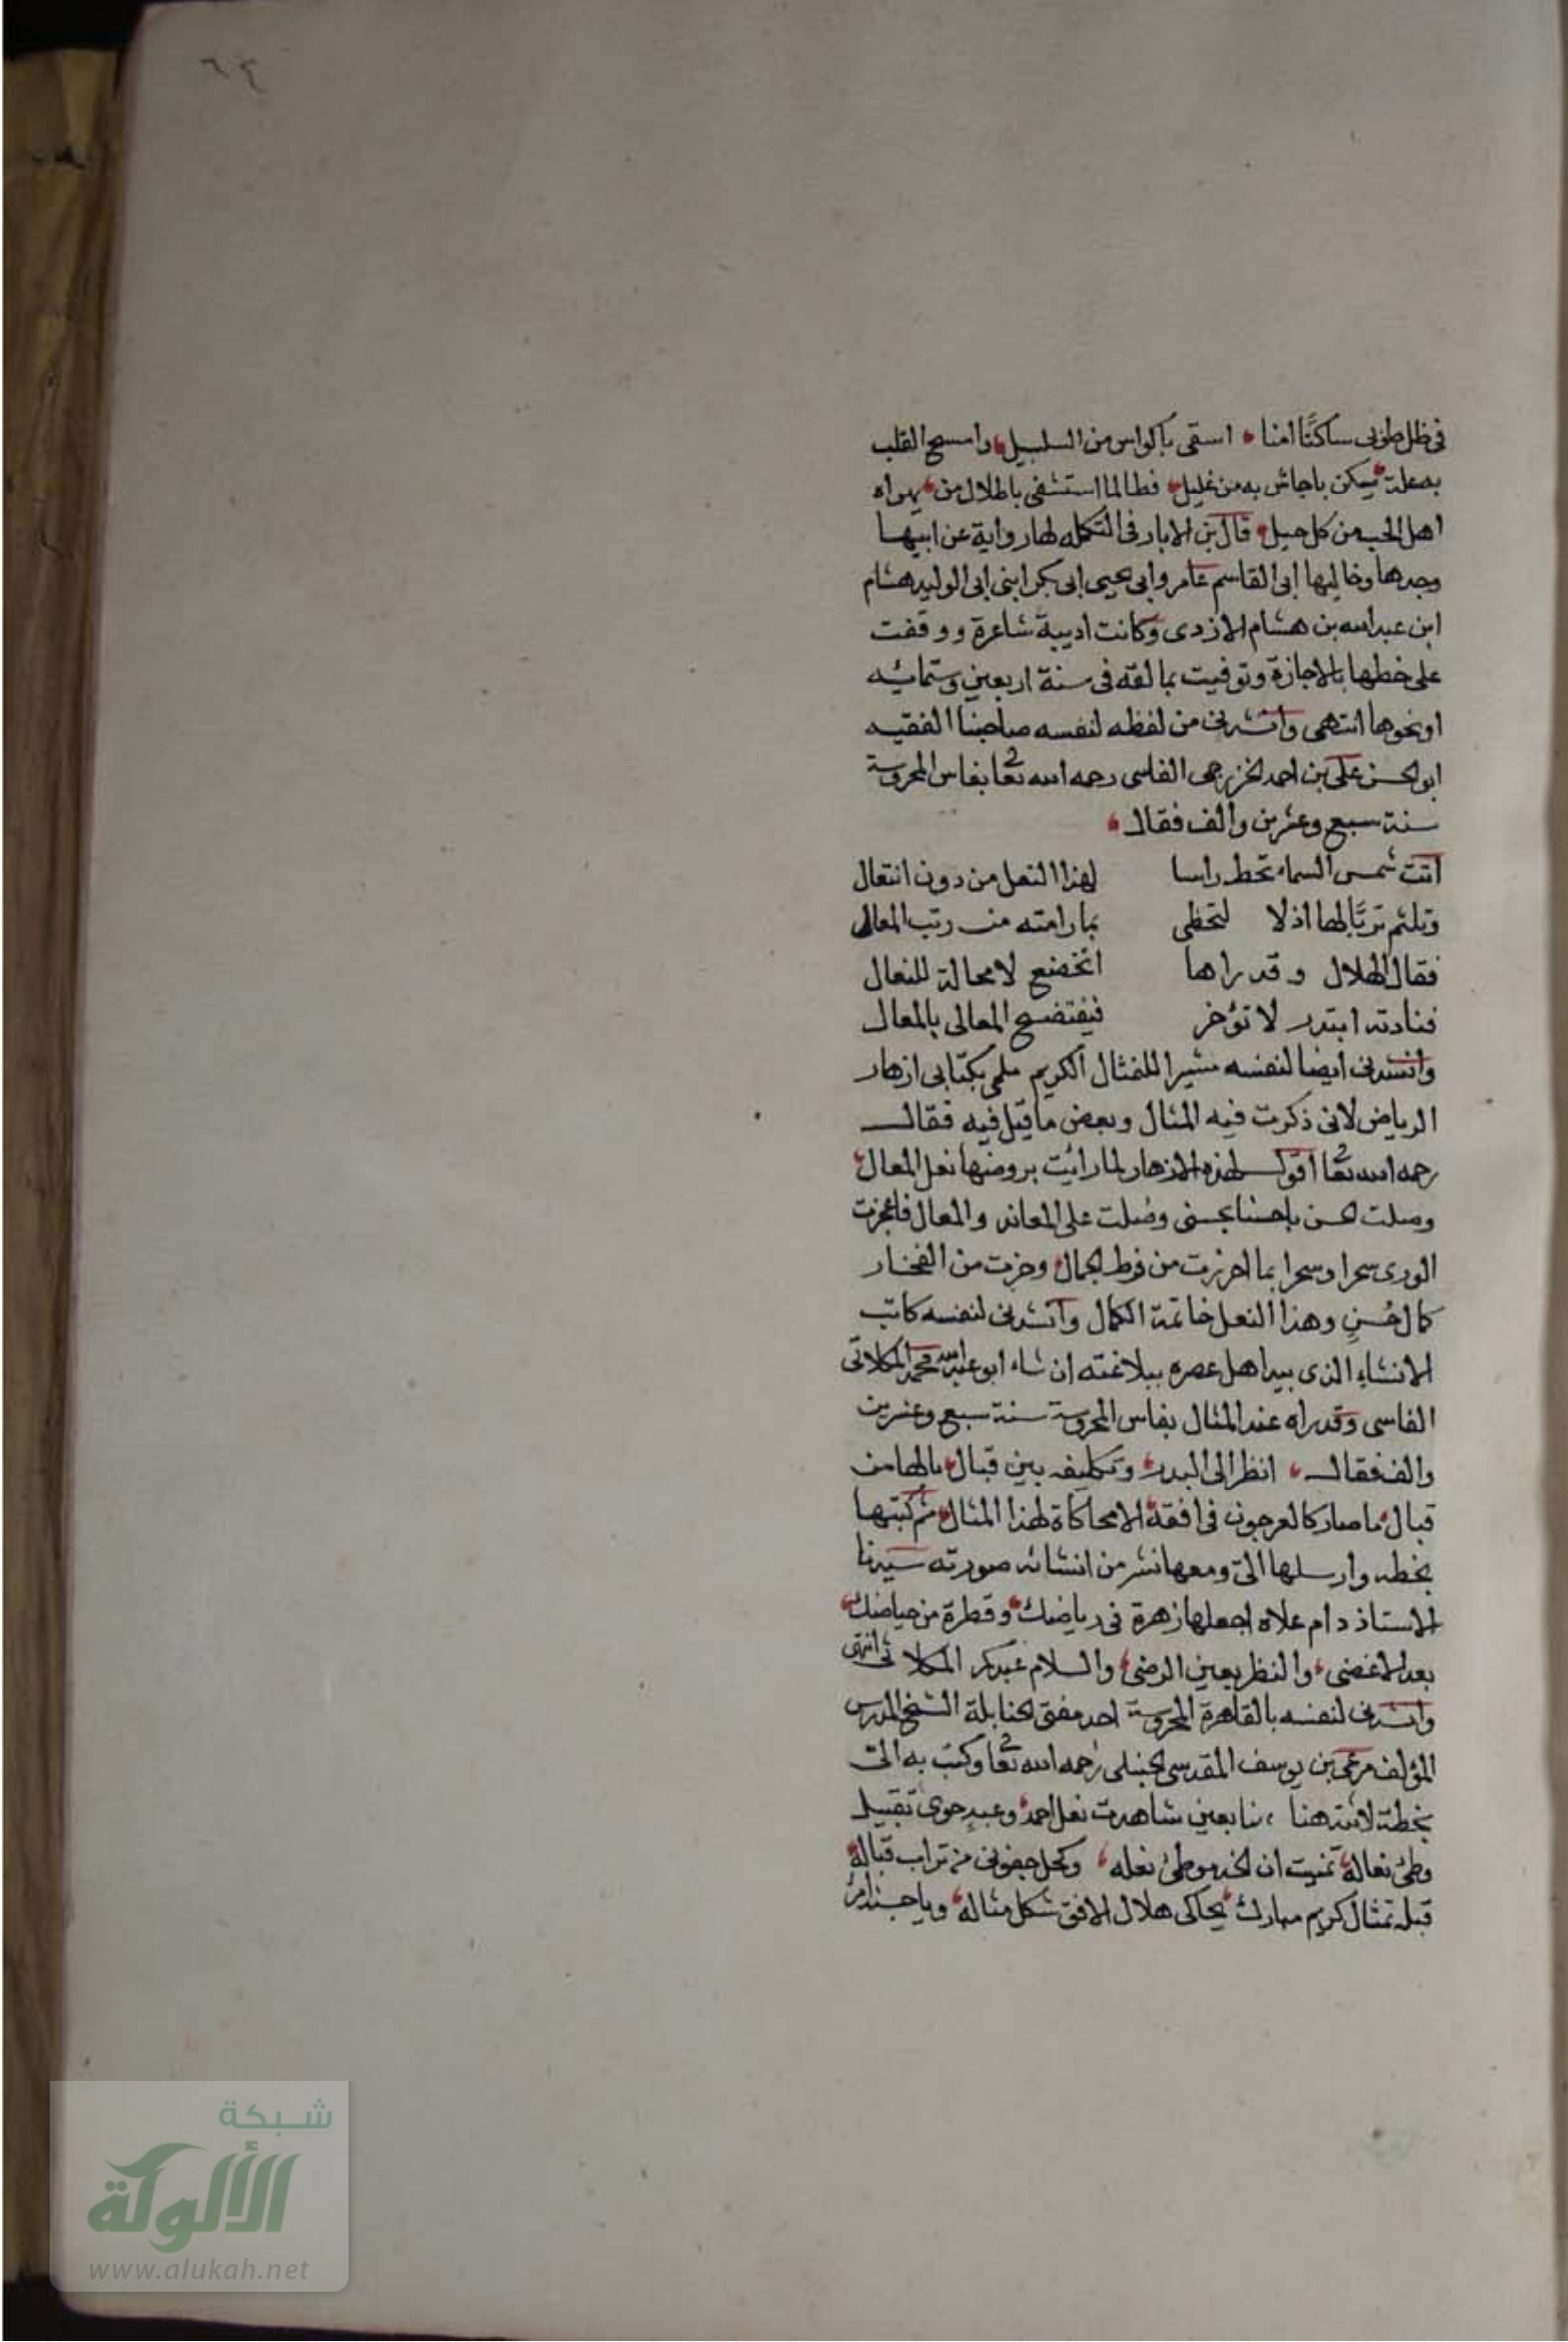 ٦٤
في ظل طوبى ساكنًا امنا، اسقى باكواس من السلسبيل، وامسح القلب
به علة يسكن ماجاش به من غليل، فطالما استشفى باطلال من، يهواه
اهل الحب من كل جيل، قال بن الابار في التكمله لها رواية عن ابيها
وجدها وخاليها ابى القاسم عامر وابى يحيى ابى بكر ابنى ابى الوليد هشام
ابن عبد الله بن هشام الازدى وكانت اديبة شاعرة ووقفت
على خطها بالاجازة وتوفيت بمالقه فى سنة اربعين وستمائه
اونحوها انتهى وانشدنى من لفظه لنفسه صاحبنا الفقيه
ابو الحسن على بن احمد الخزرجى الفاسى رحمه الله تعا بفاس المحروسة
سنة سبع وعشرين والف فقال،
اتت شمس السماء تحط راسا لهذا النعل من دون انتعال
وتلثم تربًا لها اذلا لتحظى بما رامته من رتب المعال
فقال الهلال وقد راها اتخضع لا محالة للنعال
فنادته ابتدر لا تؤخر فيفتضح المعالى بالمعال
وانشدنى ايضا لنفسه مشيرا للمثال الكريم ملمى بكتابى ازهار
الرياض لانى ذكرت فيه المثال وبعض ماقيل فيه فقال
رحمه الله تعا اقول لهذه الازهار لما رائيت بروضها نعل المعال،
وصلت الحسن ياحسنا بحسنى وصُلت على المعاند والمعال فاعجزت
الورى سحرا وسحرا بما احرزت من فرط الجمال، وحزت من الفخار
كمال حُسنٍ وهذا النعل خاتمة الكمال وانشدنى لنفسه كاتب
الانشاءِ الذى بيد اهل عصره ببلاغته ان شاء ابو عبد الله محمد المكلاتى
الفاسى وقد راه عند المثال بفاس المحروسة سنة سبع وعشرين
والف فقال، انظر الى البدر، وتكليفه بين قبال، يالها من
قبال، ماصار كالعرجون فى افقه، الامحاكاة لهذا المثال، ثم كتبها
بخطه وارسلها الىّ ومعها نثر من انشائه صورته سيدنا
الاستاذ دام علاه اجعلها زهرة فى رياضك، وقطرة من حياضك،
بعد الاغضى، والنظر بعين الرضى، والسلام عبدكم المكلاتى انتهى
وانشدنى لنفسه بالقاهرة المحروسة احد مفتى الحنابلة الشيخ المدرس
المؤلف مرعى بن يوسف المقدسى الحنبلى رحمه الله تعا وكتب به الىّ
بخطه لاثته هنا، بعين شاهدت نعل احمد، وعبد حوى تقبيل
وطئ نعاله، تمنيت ان الخد موطئ نعله، وكحل جفونى من تراب قباله،
قبله تمثال كريم مبارك، يحاكى هلال الافق شكل مثاله، وياحبذا
شبكة
الألوكة
www.alukah.net